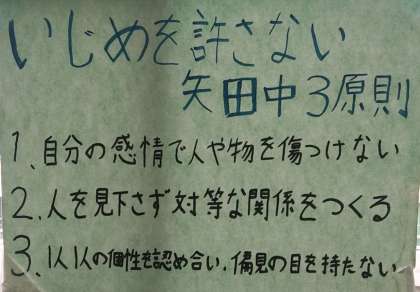 いじめを許さない
矢田中3原則
1、自分の感情で人や物を傷つけない
2、人を見下さず対等な関係をつくる
3、1人1人の個性を認め合い、偏見の目を持たない